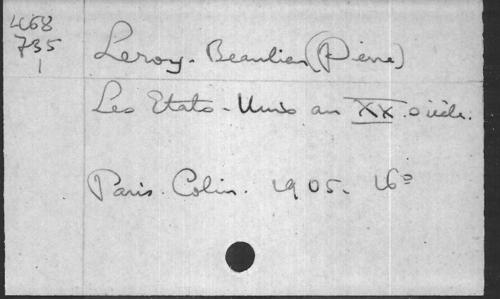 468
735
1
Leroy-Beaulieu (Pierre)
Les Etats-Unis au XX siècle.
Paris. Colin. 1905. 16º